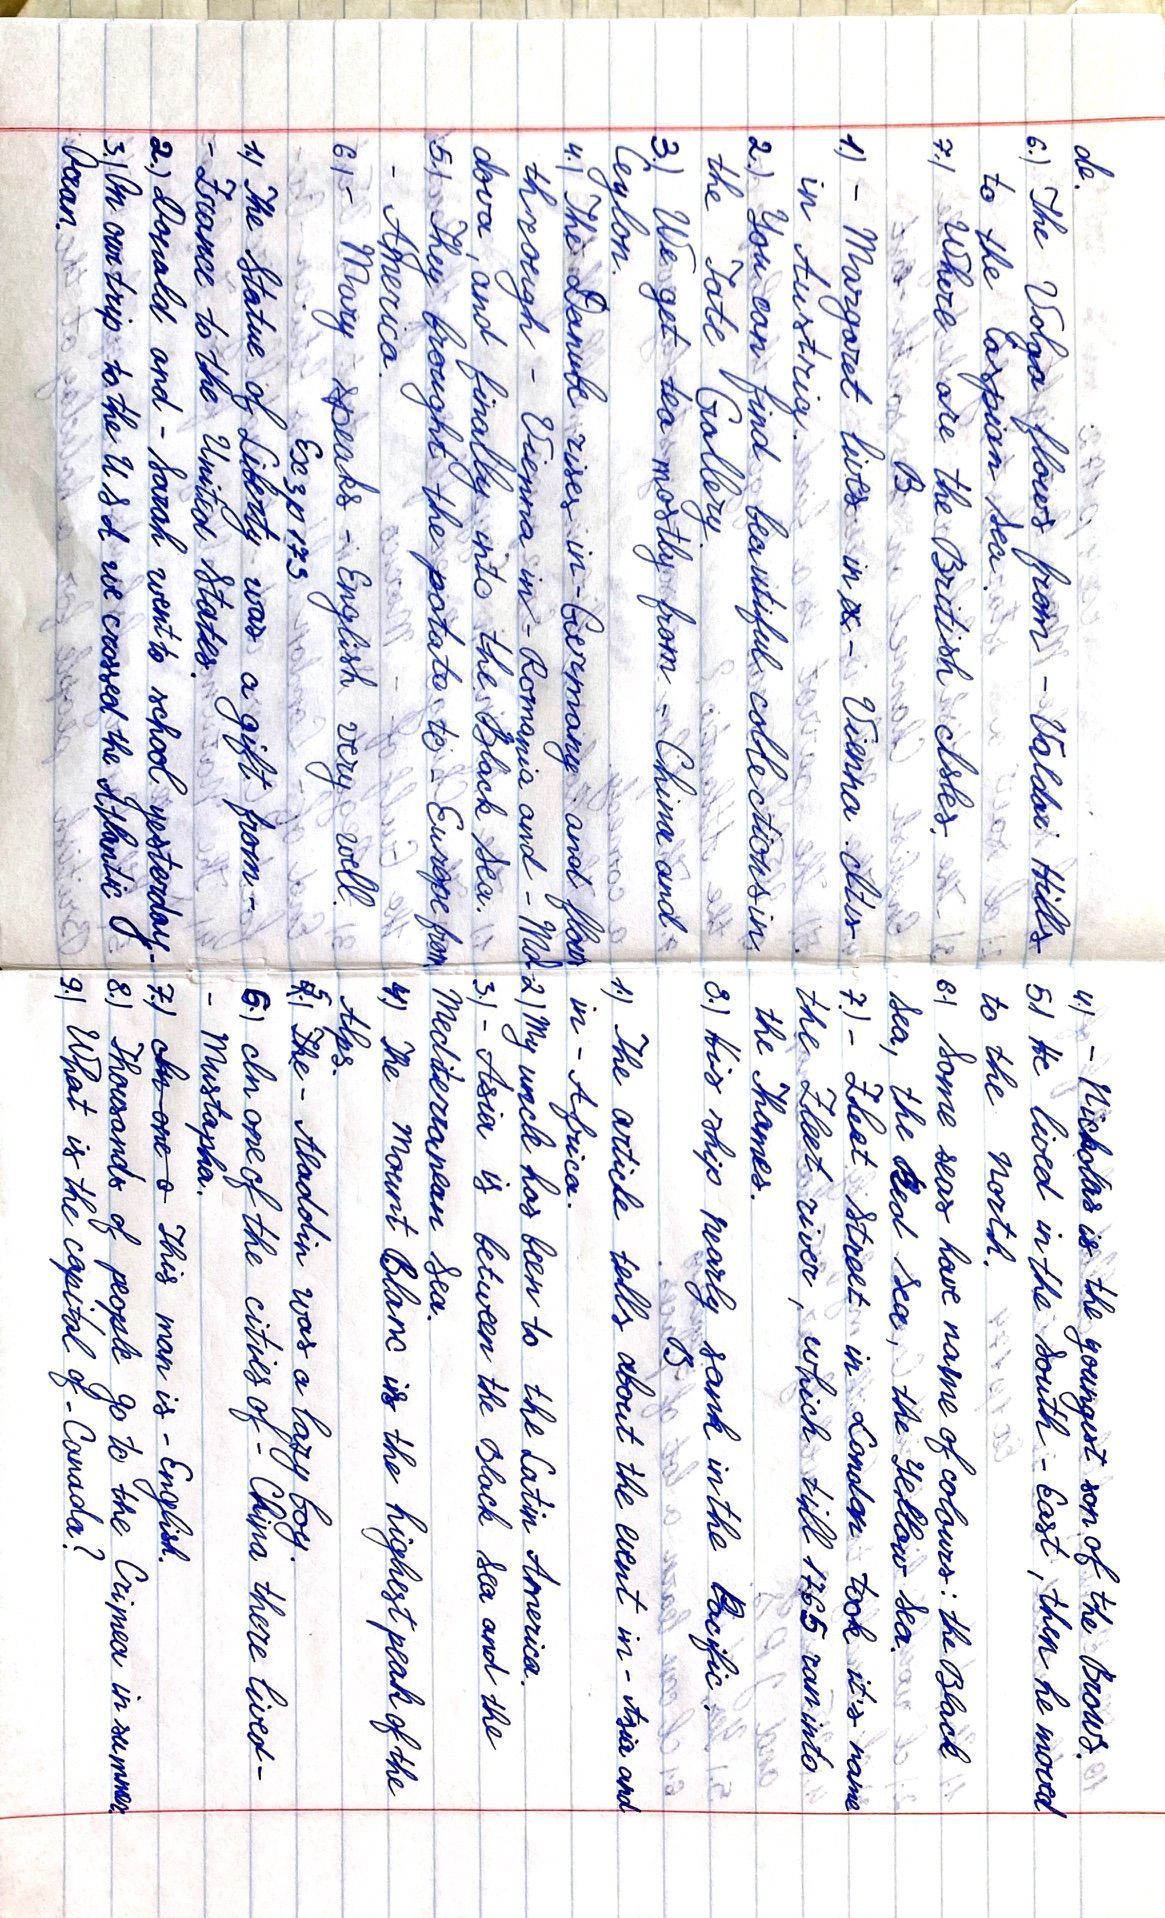 de.
6.) The Volga flows from - Valdai Hills
to the Caspian Sea.
7.) Where are the British Isles.
B
1.) - Margaret lives in x - Vienna. It's
in Austria.
2.) You can find a beautiful collections in
the Tate Gallery
3.) We get tea mostly from - China and
Ceylon.
4.) The Danube rises in - Germany and flows
through - Vienna in - Romania and - Mol-
dova, and finally into the Black Sea.
5.) They brought the potato to - Europe from
- America.
6.) - Mary speaks - English very well.
Ex 3 p 173
1.) The Statue of Liberty was a gift from -
- France to the United States.
2.) Donald and - Sarah went to school yesterday.
3.) On our trip to the USA we crossed the Atlantic O-
Ocean.
4.) - Nickolas is the youngest son of the Browns.
5.) He lived in the South - East, then he moved
to the North.
6.) Some seas have name of colours: the Black
Sea, the Red Sea, the Yellow Sea.
7.) - Fleet Street in London took it's name
the Fleet river, which till 1765 ran into
the Thames.
8.) His ship nearly sank in the Pacific.
B
1.) The article tells about the event in - Asia and
in - Africa.
2.) My uncle has been to the Latin America.
3.) - Asia is between the Black Sea and the
Mediterranean Sea.
4.) The Mount Blanc is the highest peak of the
Alps.
5.) The - Aladdin was a lazy boy.
6.) In one of the cities of - China there lived -
- Mustapha.
7.) In one o This man is - English.
8.) Thousands of people go to the Crimea in summer.
9.) What is the capital of - Canada?